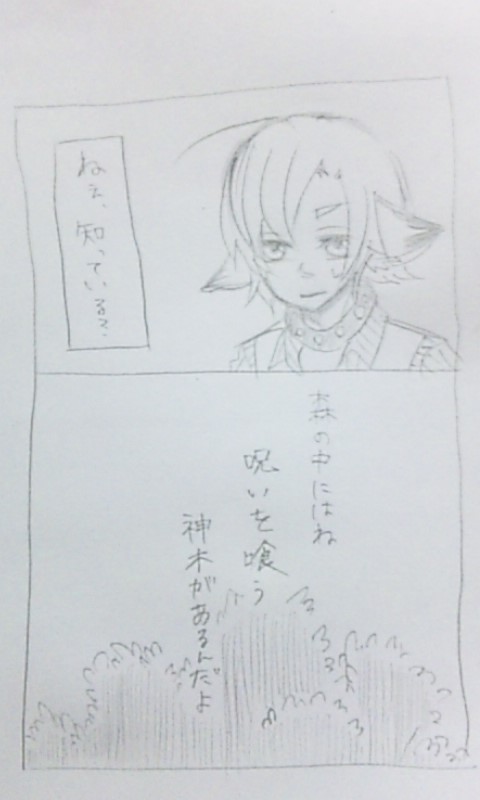 ねぇ、知っている?
森の中にはね
呪いを喰う
神木があるんだよ